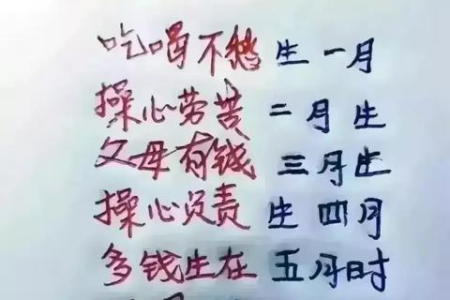 吃喝不愁生一月
操心劳苦二月生
父母有钱三月生
操心负责生四月
多钱生在五月时